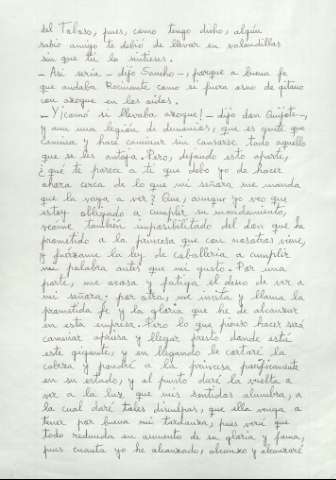 del Toboso, pues, como tengo dicho, algún
sabio amigo te debió de llevar en volandillas
sin que tú lo sintieses.
- Así sería - dijo Sancho -, porque a buena fe
que andaba Rocinante como si fuera asno de gitano
con azogue en los oídos.
- Y ¡cómo si llevaba azogue! - dijo don Quijote -,
y aun una legión de demonios, que es gente que
camina y hace caminar sin cansarse, todo aquello
que se les antoja. Pero, dejando esto aparte,
¿qué te parece a ti que debo yo de hacer
ahora cerca de lo que mi señora me manda
que la vaya a ver? Que, aunque yo veo que
estoy obligado a cumplir su mandamiento,
véome también imposibilitado del don que he
prometido a la princesa que con nosotros viene,
y fuérzame la ley de caballería a cumplir
mi palabra antes que mi gusto. Por una
parte, me acosa y fatiga el deseo de ver a
mi señora; por otra, me incita y llama la
prometida fe y la gloria que he de alcanzar
en esta empresa. Pero lo que pienso hacer será
caminar apriesa y llegar presto donde está
este gigante, y en llegando le cortaré la
cabeza y pondré a la princesa pacíficamente
en su estado, y al punto daré la vuelta a
ver a la luz que mis sentidos alumbra, a
la cual daré tales disculpas, que ella venga a
tener por buena mi tardanza, pues verá que
todo redunda en aumento de su gloria y fama,
pues cuanta yo he alcanzado, alcanzo y alcanzaré